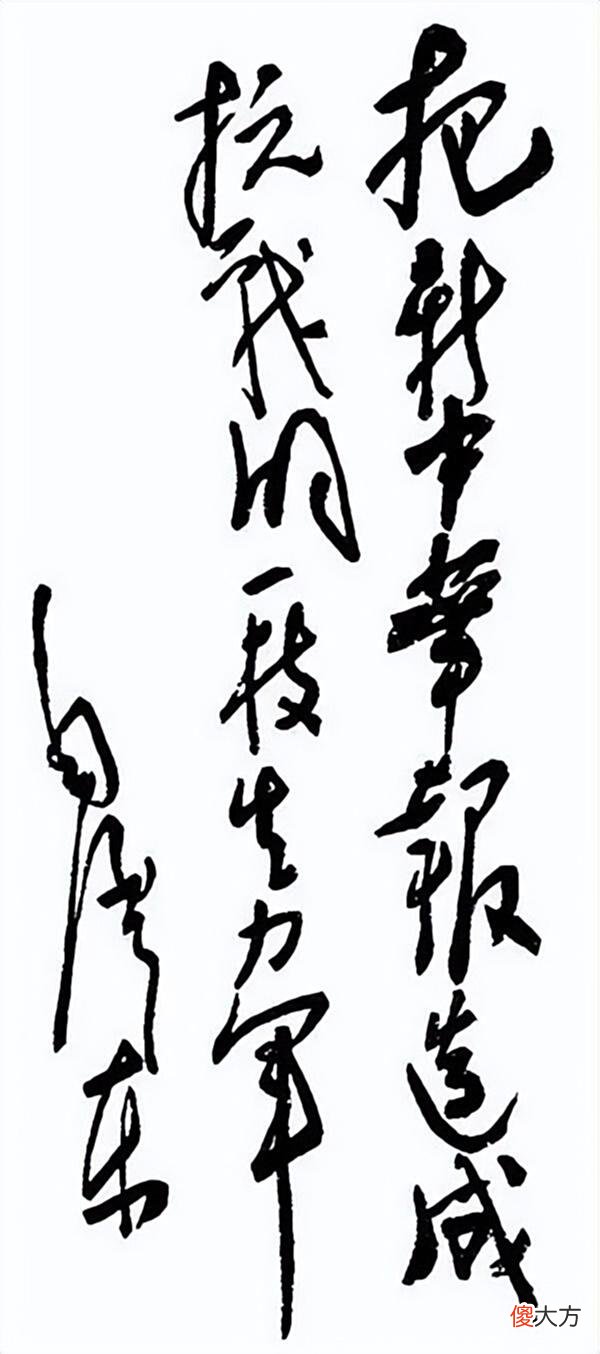 把新中華報造成
抗战的一枝生力军
毛泽东
傻大方